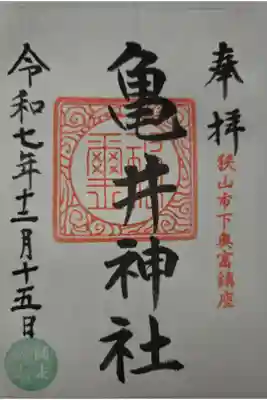 奉拝
狭山市下奥富鎮座
亀井神社
令和七年十二月十五日